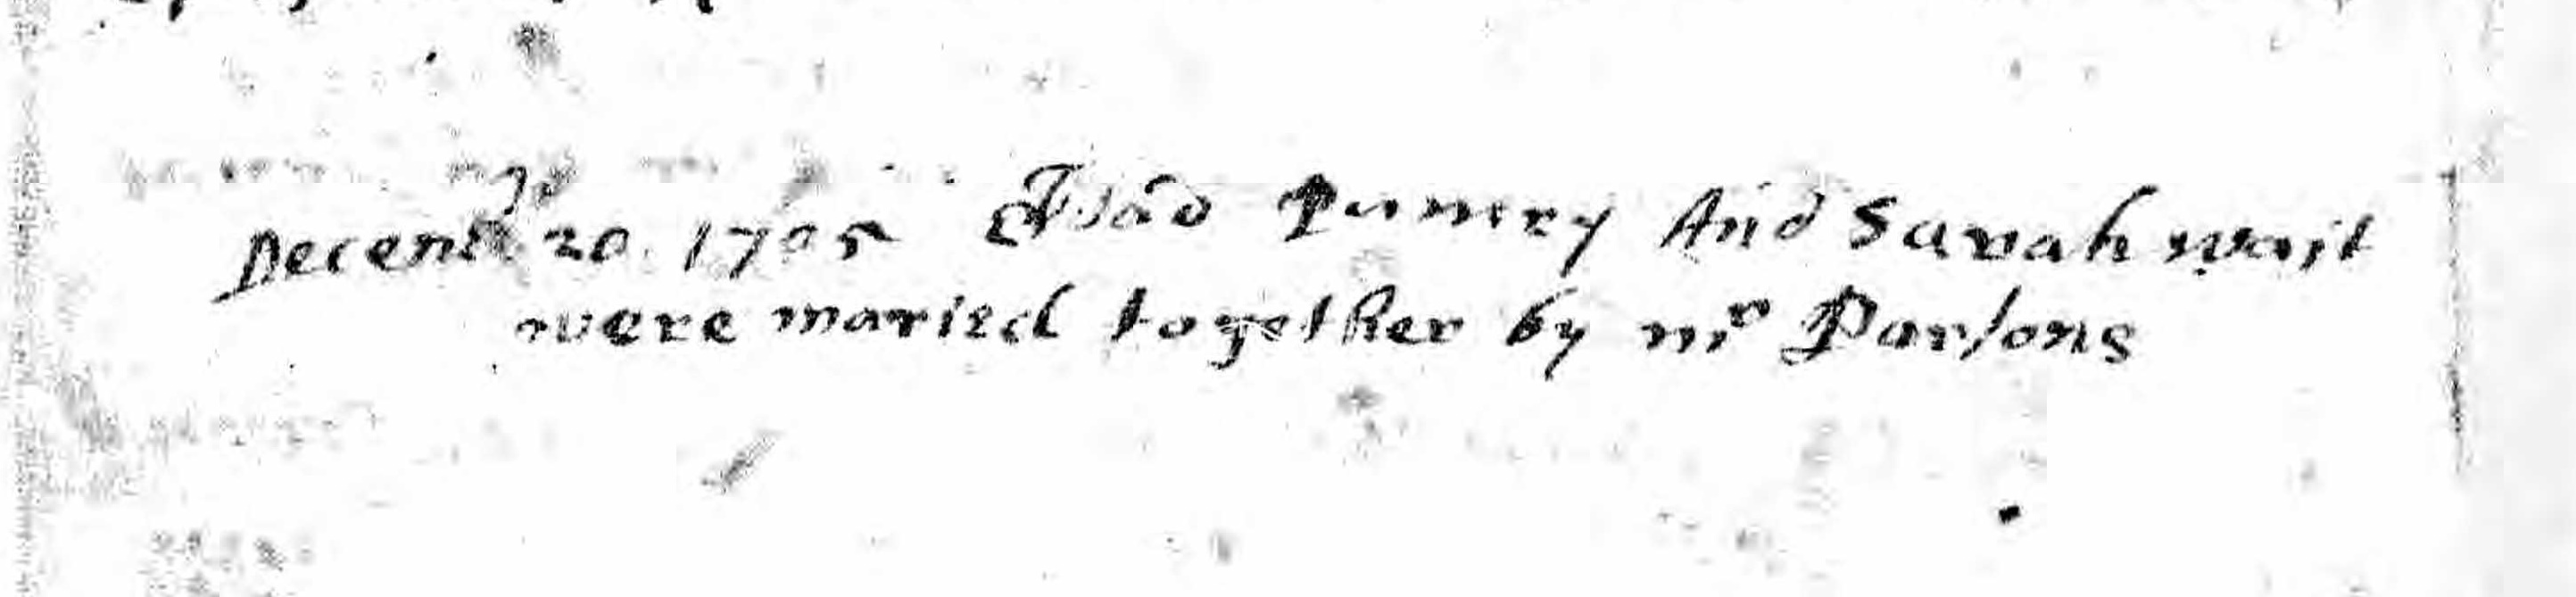 Decemb 20 1705 Pumrey And Sarah wait
were maried together by mr Parsons